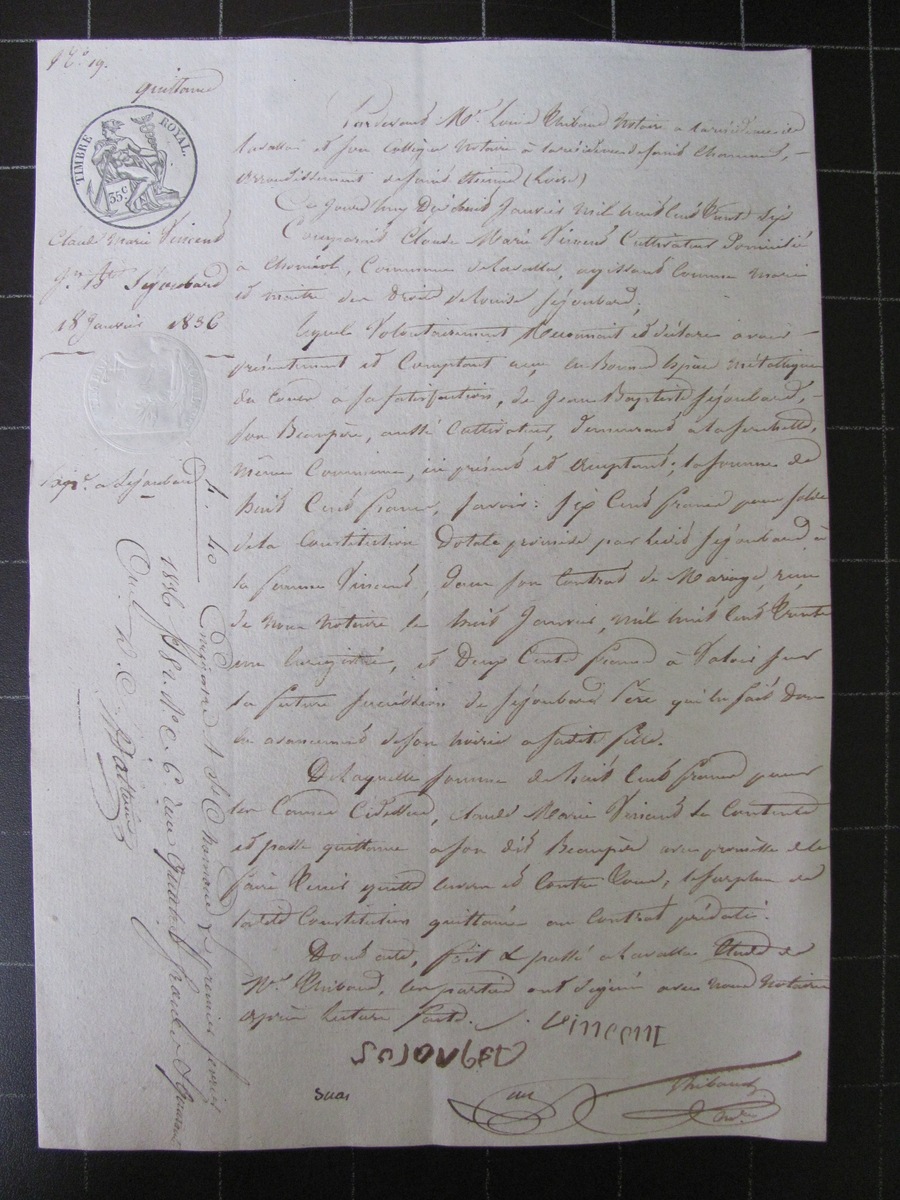 N.º 19.
quittance
TIMBRE ROYAL.
35 C
Claude Marie Vincent
Jn. Bte Séjoubard
18 Janvier 1836
Par devant Me. Louis Thibaud Notaire à la résidence de
Lavalla et son collègue Notaire à la résidence de Saint Chamond, -
arrondissement de Saint Etienne (Loire)
Ce jourd'huy Dix huit Janvier mil huit cent trente six
Comparait Claude Marie Vincent Cultivateur Domicilié
à Commune de Lavalla, agissant Comme Mari
et maitre des Droits de Louise Séjoubard;
Lequel Volontairement Reconnait et déclare avoir
présentement et Comptant reçu en Bonnes Espèces métalliques
du Cours à sa satisfaction, de Jean Baptiste Séjoubard, -
son Beaupère, aussi Cultivateur, demeurant à
même Commune, ici présent et acceptant; la somme de
huit Cents francs, savoir: six Cents francs pour solde
de la Constitution Dotale promise par ledit Séjoubard à
la femme Vincent, dans son Contrat de Mariage, reçu
de nous Notaire le huit Janvier, mil huit cent trente
un Enregistré, et Deux Cents francs à Valoir sur
la future succession de Séjoubard Père qui lui fait Don
en avancement de son hoirie a sadite fille.
De laquelle somme de huit Cents francs pour
les Causes Cidessus, Claude Marie Vincent se Contente
et passe quittance à son dit Beaupère avec promesse de le
faire tenir quitte envers et Contre tous; le surplus de
ladite Constitution quittancé au Contrat prédaté.
Dont acte, fait & passé à Lavalla Etude de
Me. Thibaud, les parties ont signé avec nous Notaires
après lecture faite.
Vincent
Thibaud
Enregistré à St Chamond le premier fevrier
1836
quatre francs